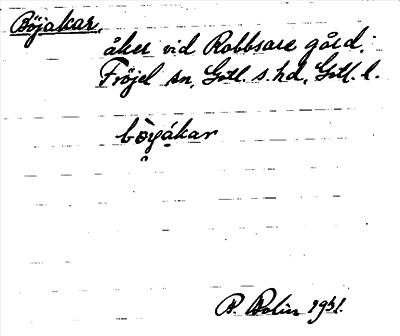 Böjakar,
åker vid Robbsare gård,
Fröjel sn, Gotl. s. hd, Gotl. l.
bòyákar
B. Bolin 1931.